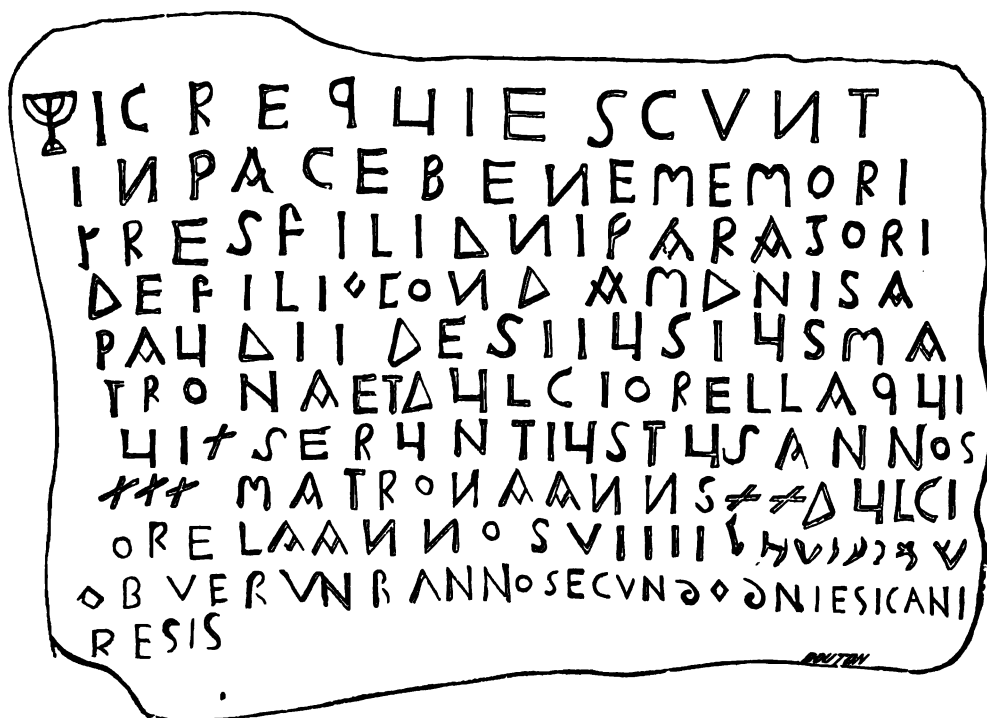 IC REQUIESCVNT
IN PACE BENEMEMORI
TRES FILI DNI PARAGORI
DE FILIO CONDAM DNI SA
PAUDI ID ES IIUSTUS MA
TRONA ET DULCIORELLA QUI
UIXSERUNT IUSTUS ANNOS
XXX MATRONA ANNS XX DULCI
ORELA ANNOS VIIII
OBVERVNT ANNO SECVNDO DNI EGICANI
REGIS